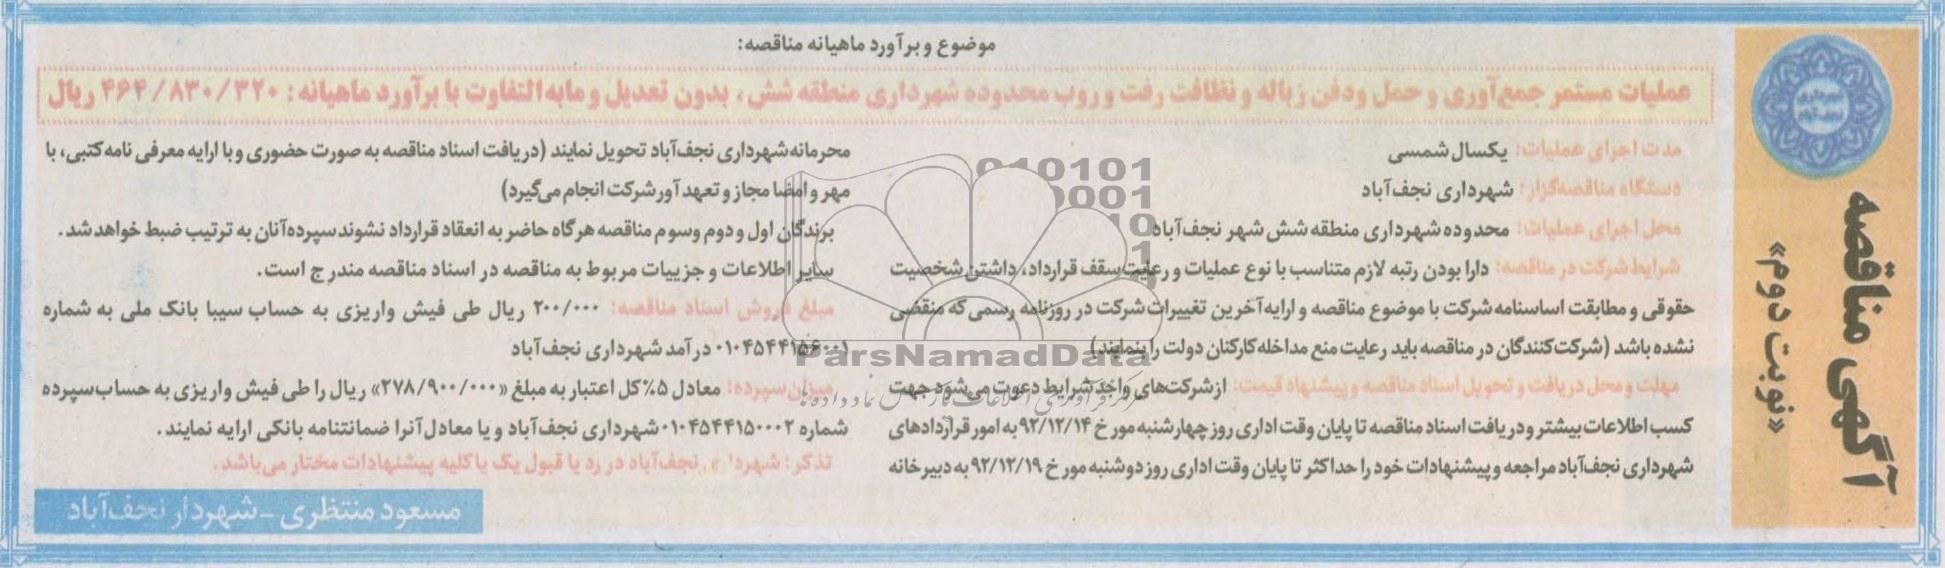 آگهی مناقصه
«نوبت دوم»
شهرداری
نجف‌آباد
موضوع و برآورد ماهیانه مناقصه:
عملیات مستمر جمع‌آوری و حمل ودفن زباله و نظافت رفت و روب محدوده شهرداری منطقه شش، بدون تعدیل و مابه‌التفاوت با برآورد ماهیانه: ۴۶۴/۸۳۰/۳۲۰ ریال
مدت اجرای عملیات: یکسال شمسی
دستگاه مناقصه‌گزار: شهرداری نجف‌آباد
محل اجرای عملیات: محدوده شهرداری منطقه شش شهر نجف‌آباد
شرایط شرکت در مناقصه: دارا بودن رتبه لازم متناسب با نوع عملیات و رعایت سقف قرارداد، داشتن شخصیت
حقوقی و مطابقت اساسنامه شرکت با موضوع مناقصه و ارایه آخرین تغییرات شرکت در روزنامه رسمی که منقضی
نشده باشد (شرکت‌کنندگان در مناقصه باید رعایت منع مداخله کارکنان دولت را بنمایند)
مهلت و محل دریافت و تحویل اسناد مناقصه و پیشنهاد قیمت: از شرکت‌های واجد شرایط دعوت می‌شود جهت
کسب اطلاعات بیشتر و دریافت اسناد مناقصه تا پایان وقت اداری روز چهارشنبه مورخ ۹۲/۱۲/۱۴ به امور قراردادهای
شهرداری نجف‌آباد مراجعه و پیشنهادات خود را حداکثر تا پایان وقت اداری روز دوشنبه مورخ ۹۲/۱۲/۱۹ به دبیرخانه
محرمانه شهرداری نجف‌آباد تحویل نمایند (دریافت اسناد مناقصه به صورت حضوری و با ارایه معرفی نامه کتبی، با
مهر و امضا مجاز و تعهد آور شرکت انجام می‌گیرد)
برندگان اول و دوم و سوم مناقصه هرگاه حاضر به انعقاد قرارداد نشوند سپرده آنان به ترتیب ضبط خواهد شد.
سایر اطلاعات و جزییات مربوط به مناقصه در اسناد مناقصه مندرج است.
مبلغ فروش اسناد مناقصه: ۲۰۰/۰۰۰ ریال طی فیش واریزی به حساب سیبا بانک ملی به شماره
۰۱۰۴۵۴۴۱۵۶۰۰۱ درآمد شهرداری نجف‌آباد
میزان سپرده: معادل ۵٪ کل اعتبار به مبلغ «۲۷۸/۹۰۰/۰۰۰» ریال را طی فیش واریزی به حساب سپرده
شماره ۰۱۰۴۵۴۴۱۵۰۰۰۲ شهرداری نجف‌آباد و یا معادل آنرا ضمانتنامه بانکی ارایه نمایند.
تذکر: شهرداری نجف‌آباد در رد یا قبول یک یا کلیه پیشنهادات مختار می‌باشد.
مسعود منتظری - شهردار نجف‌آباد
ParsNamadData